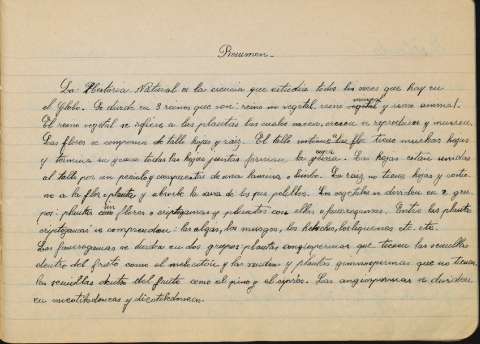 Resumen.
La Historia Natural es la ciencia que estudia todos los seres que hay en
el Globo. Se divide en 3 reinos que son: reino no vegetal, reino mineral y reino animal.
El reino vegetal se refiere a las plantas las cuales nacen, crecen se reproducen y mueren.
Las flores se componen de tallo hojas y raiz. El tallo la flor tiene muchas hojas
y termina en todas las hojas juntas forman la copa. Las hojas estan unidas
al tallo por un peciolo y compuestas de una lamina o limbo. La raiz no tiene hojas y sostie-
ne a la planta y absorbe la sava de los por pelillos. Los vegetales se dividen en 2 gru-
pos: plantas sin flores o criptogamas y plantas con ellas o fanerogamas. Entre las plantas
criptogamas se comprenden: las algas, los musgos, los helechos, los liquenes etc. etc.
Las fanerogamas se dividen en dos grupos plantas angiospermas que tienen las semillas
dentro del fruto como el melocotón y las y plantas gimnospermas que no tienen
las semillas dentro del fruto como el pino y el ciprés. Las angiospermas se dividen
en monocotiledoneas y dicotiledoneas.